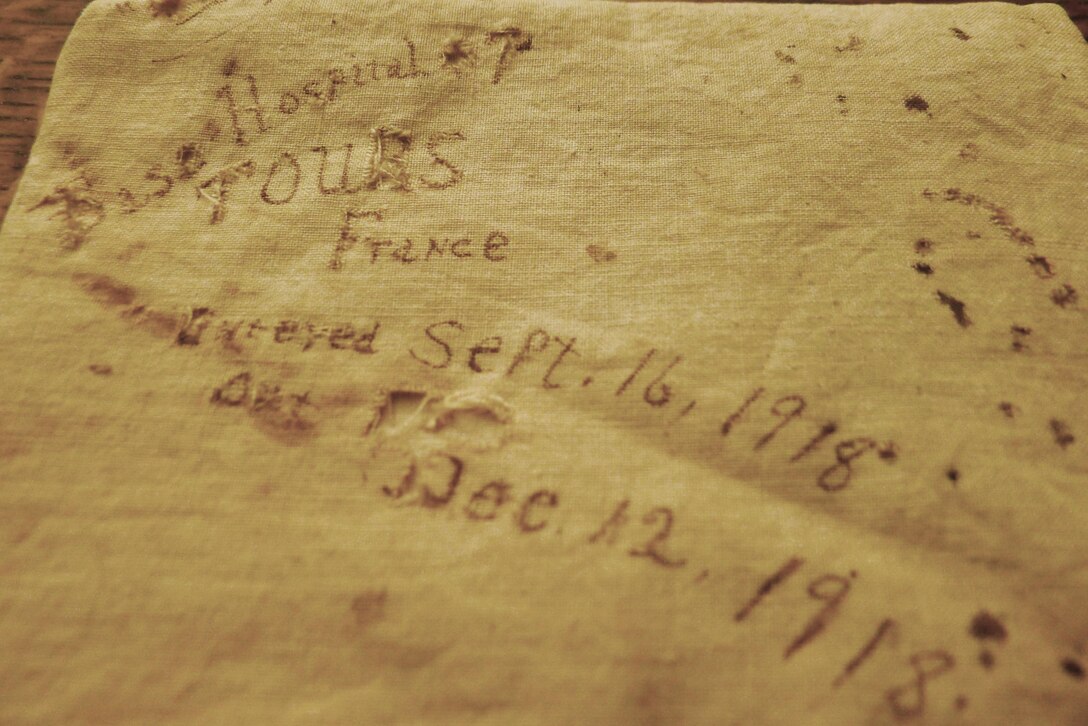 Base Hospital #7
TOURS
France
Entered Sept. 16, 1918.
Out
Dec. 12, 1918.